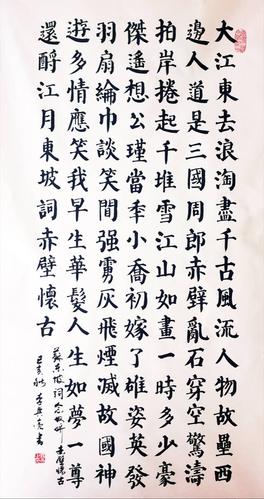 大江東去浪淘盡千古風流人物故壘西
邊人道是三國周郎赤壁亂石穿空驚濤
拍岸捲起千堆雪江山如畫一時多少豪
傑遙想公瑾當秊小喬初嫁了雄姿英發
羽扇綸巾談笑間强虜灰飛煙滅故國神
遊多情應笑我早生華髮人生如夢一尊
還酹江月東坡詞赤壁懷古
蘇東坡詞念奴嬌赤壁懷古
己亥秋